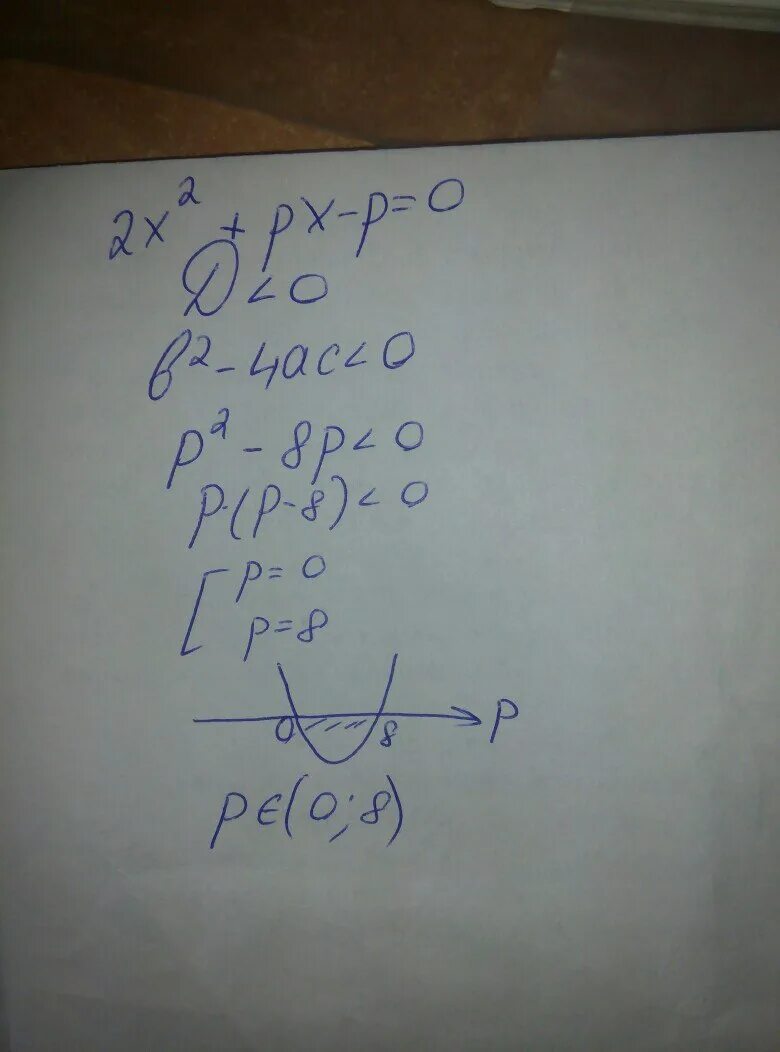 2x² + px - p = 0
D < 0
b² - 4ac < 0
p² - 8p < 0
p·(p - 8) < 0
[ p = 0
p = 8
0 8 p
p ∈ (0; 8)